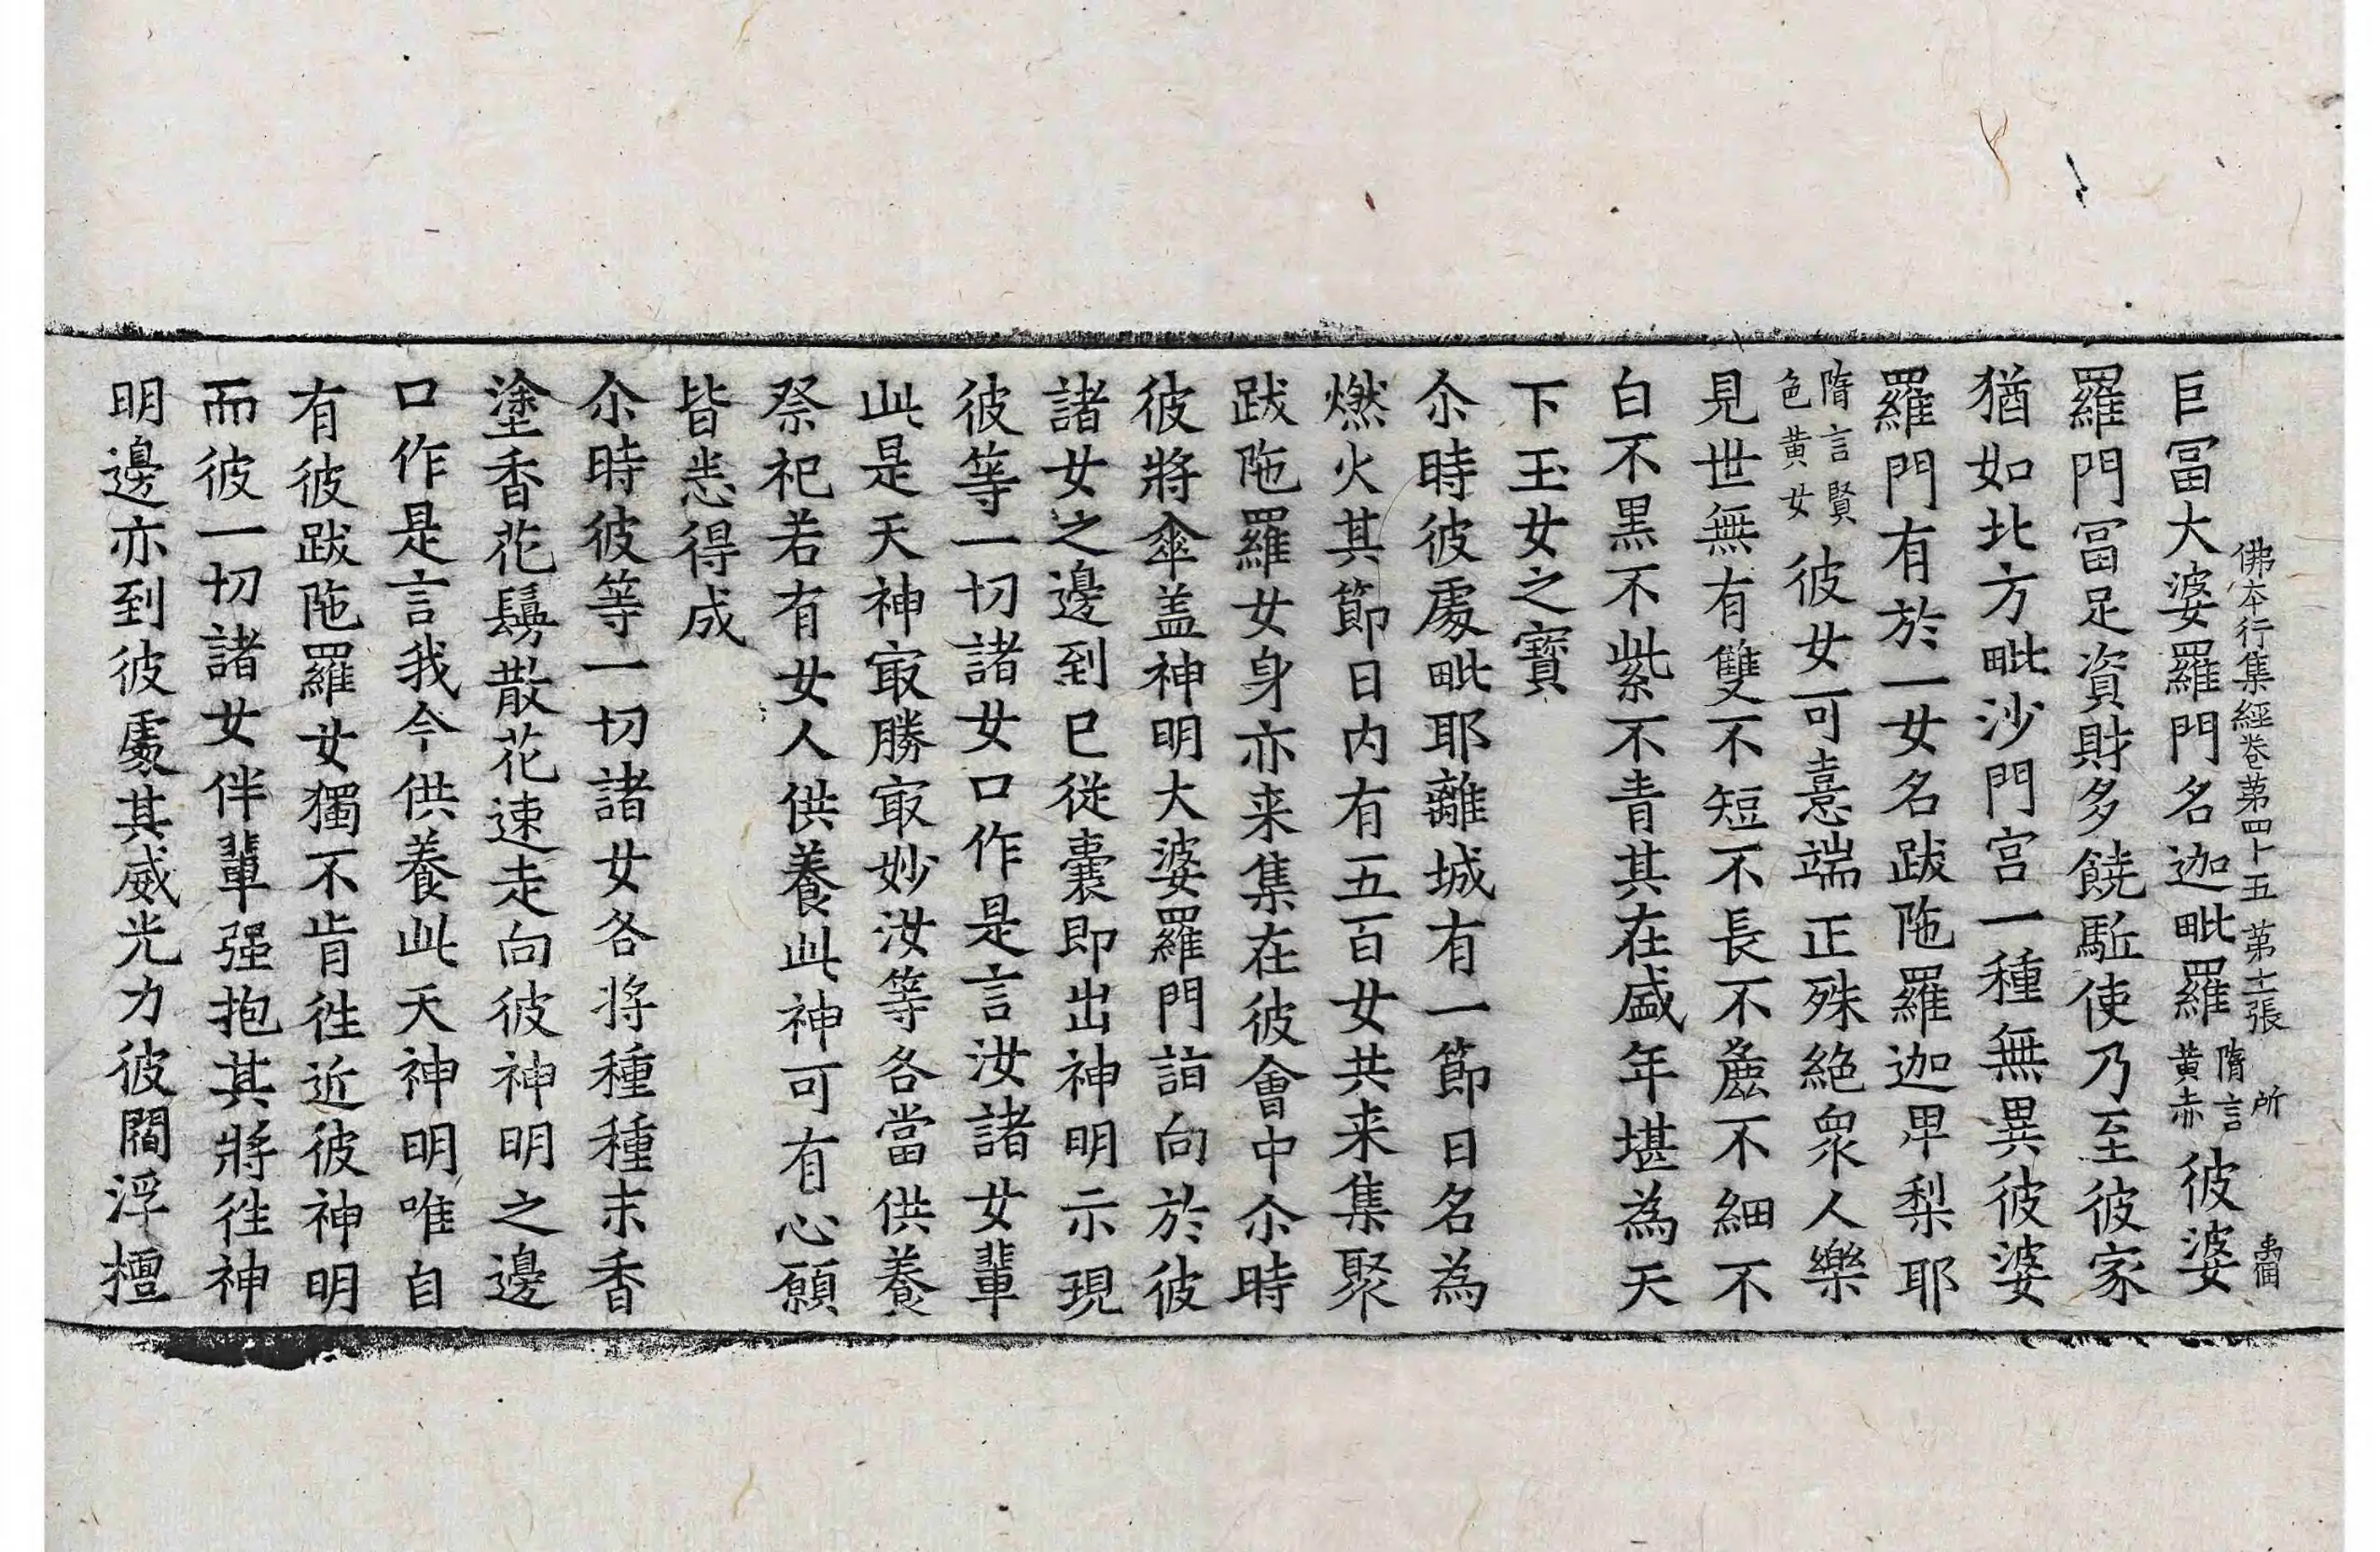 佛本行集經卷第四十五 第十張 所
巨冨大婆羅門名迦毗羅隋言黄赤彼婆
羅門冨足資財多饒駈使乃至彼家
猶如北方毗沙門宫一種無異彼婆
羅門有於一女名跋陁羅迦卑梨耶
隋言賢色黄女彼女可憙端正殊絶衆人樂
見世無有雙不短不長不麁不細不
白不黒不紫不青其在盛年堪為天
下玉女之寳
尒時彼處毗耶離城有一節日名為
燃火其節日内有五百女共来集聚
跋陁羅女身亦来集在彼會中尒時
彼將傘盖神明大婆羅門詣向於彼
諸女之邊到已從囊即出神明示現
彼等一切諸女口作是言汝諸女輩
此是天神㝡勝㝡妙汝等各當供養
祭祀若有女人供養此神可有心願
皆悉得成
尒時彼等一切諸女各将種種末香
塗香花鬘散花速走向彼神明之邊
口作是言我今供養此天神明唯自
有彼跋陁羅女獨不肯徃近彼神明
而彼一切諸女伴輩强抱其將徃神
明邊亦到彼處其威光力彼閻浮檀